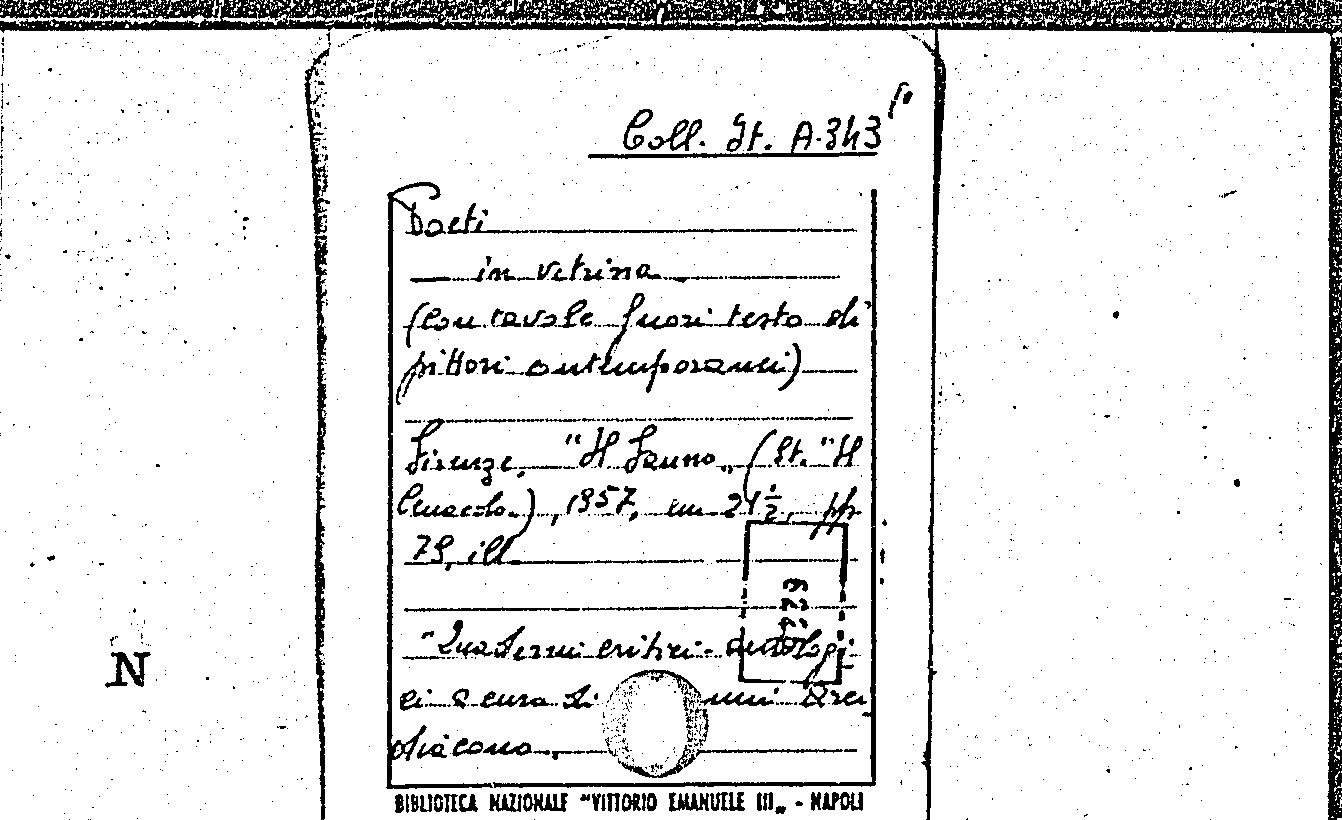 Coll. It. A.343
Poeti
— in vetrina
(Con tavole fuori testo di
pittori contemporanei)
Firenze, "Il Fauno„ (St. "Il
Cenacolo„), 1957, cm 24½, pp.
79, ill.
"Quaderni critici-antologi-
ci a cura di Arci
diacono„.
BIBLIOTECA NAZIONALE "VITTORIO EMANUELE III„ - NAPOLI
N